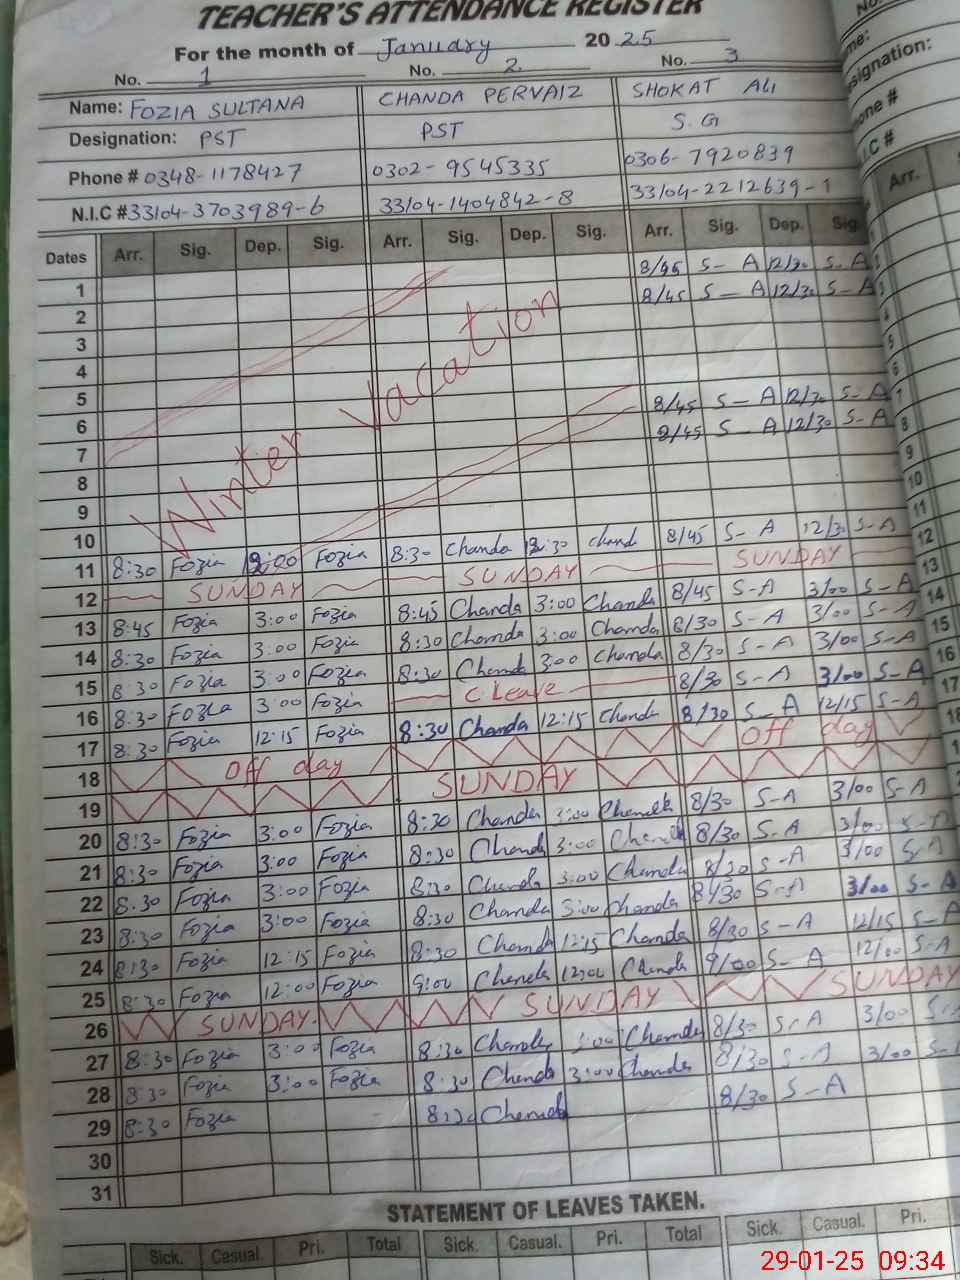 TEACHER'S ATTENDANCE REGISTER
For the month of January 2025
No. 1 No. 2 No. 3
Name: FOZIA SULTANA CHANDA PERVAIZ SHOKAT ALI
Designation: PST PST S.G
Phone # 0348-1178427 0302-9545335 0306-7920839
N.I.C # 33104-3703989-6 33104-1404842-8 33104-2212639-1
Dates Arr. Sig. Dep. Sig. Arr. Sig. Dep. Sig. Arr. Sig. Dep. Sig. Arr.
8/45 S-A 12/30 S-A
1 8/45 S-A 12/30 S-A
2
3
4
Winter Vacation
5 8/45 S-A 12/30 S-A
6 8/45 S-A 12/30 S-A
7
8
9
10 8/45 S-A 12/30 S-A
11 8:30 Fozia 12:00 Fozia 8:30 Chanda 12:30 Chand SUNDAY
12 SUNDAY SUNDAY 8/45 S-A 3/00 S-A
13 8:45 Fozia 3:00 Fozia 8:45 Chanda 3:00 Chanda 8/30 S-A 3/00 S-A
14 8:30 Fozia 3:00 Fozia 8:30 Chanda 3:00 Chanda 8/30 S-A 3/00 S-A
15 8:30 Fozia 3:00 Fozia 8:30 Chanda 3:00 Chanda 8/30 S-A 3/00 S-A
16 8:30 Fozia 3:00 Fozia C. Leave 8/30 S-A 12/15 S-A
17 8:30 Fozia 12:15 Fozia 8:30 Chanda 12:15 Chanda off day
18 off day
19 SUNDAY
20 8:30 Fozia 3:00 Fozia 8:30 Chanda 3:00 Chanda 8/30 S-A 3/00 S-A
21 8:30 Fozia 3:00 Fozia 8:30 Chanda 3:00 Chanda 8/30 S-A 3/00 S-A
22 8:30 Fozia 3:00 Fozia 8:30 Chanda 3:00 Chanda 8/30 S-A 3/00 S-A
23 8:30 Fozia 3:00 Fozia 8:30 Chanda 3:00 Chanda 8/30 S-A 3/00 S-A
24 8:30 Fozia 12:15 Fozia 8:30 Chanda 12:15 Chanda 8/30 S-A 12/15 S-A
25 8:30 Fozia 12:00 Fozia 9:00 Chanda 12:00 Chanda 9/00 S-A 12/00 S-A
26 SUNDAY SUNDAY SUNDAY
27 8:30 Fozia 3:00 Fozia 8:30 Chanda 3:00 Chanda 8/30 S-A 3/00 S-A
28 8:30 Fozia 3:00 Fozia 8:30 Chanda 3:00 Chanda 8/30 S-A 3/00
29 8:30 Fozia 8:30 Chanda 8/30 S-A
30
31
STATEMENT OF LEAVES TAKEN.
Sick. Casual. Pri. Total Sick. Casual. Pri. Total Sick. Casual. Pri.
29-01-25 09:34